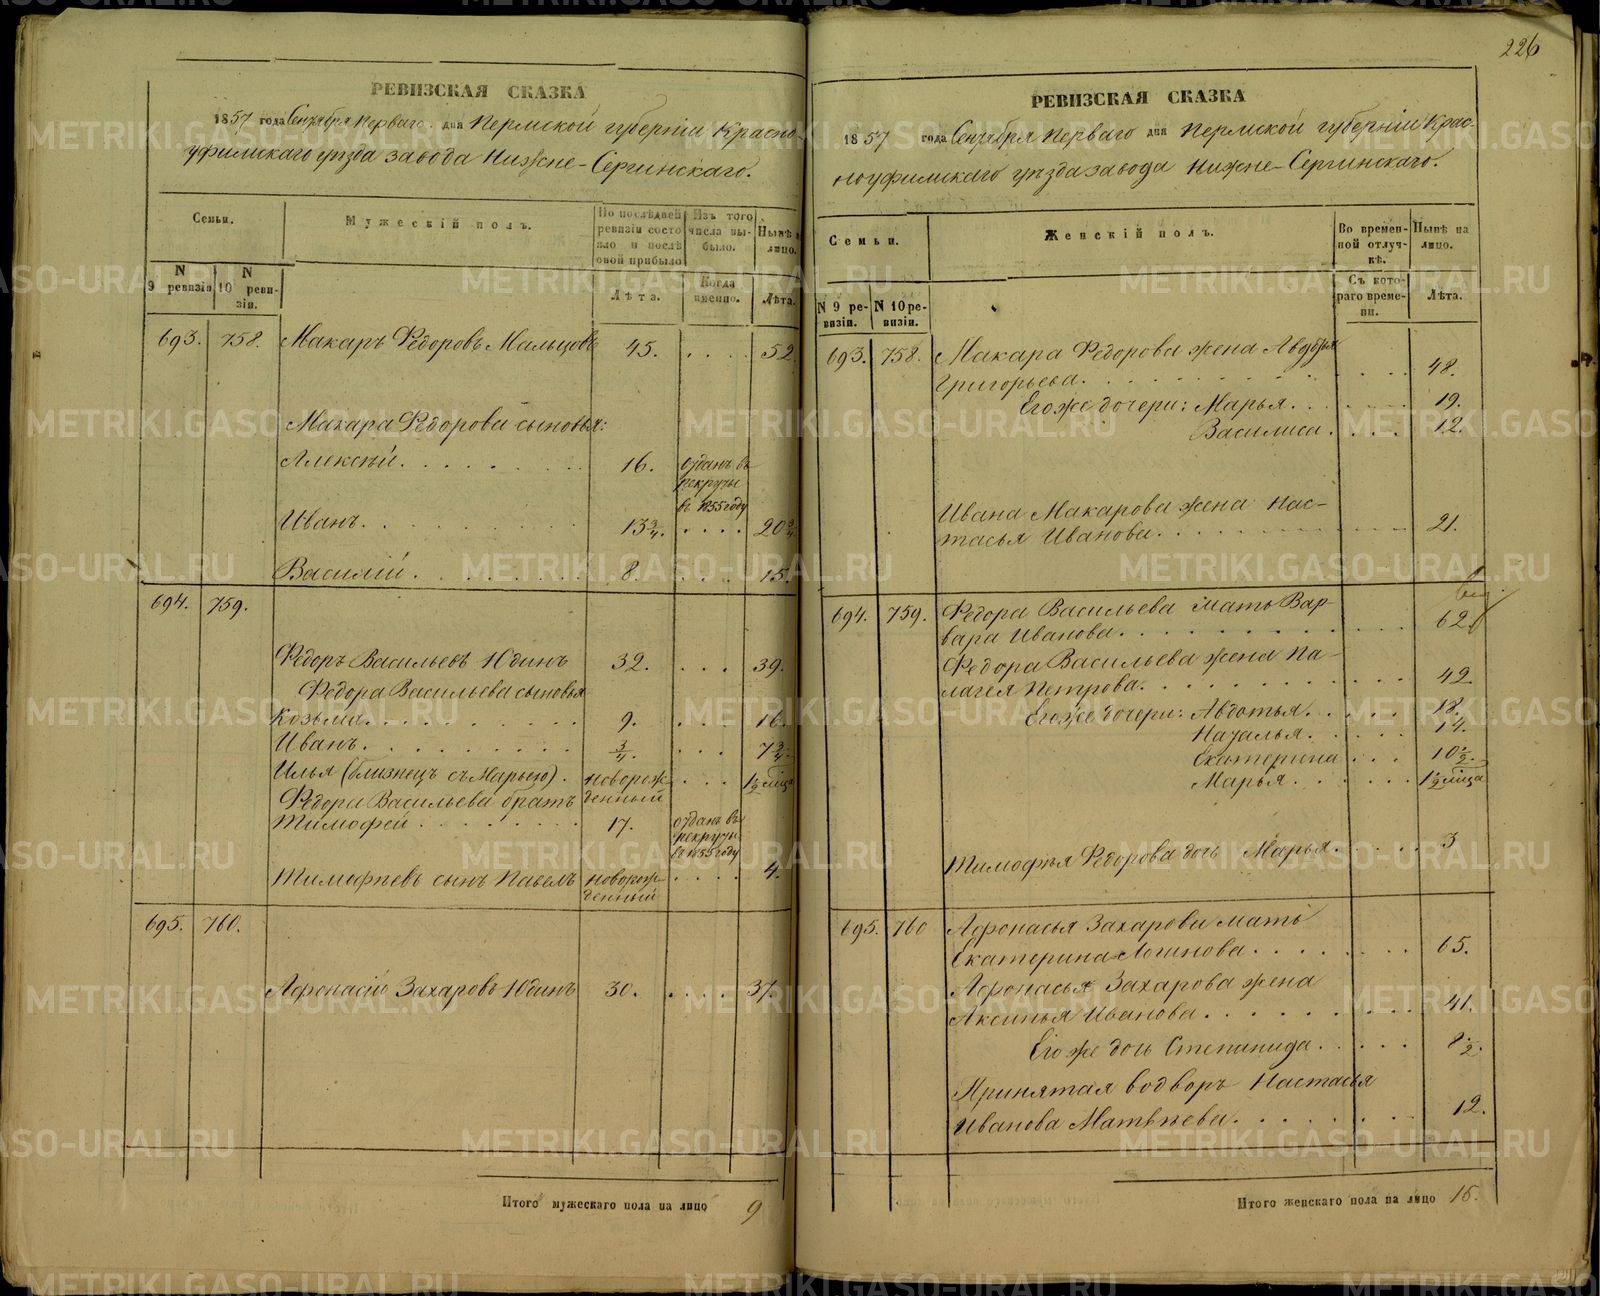 226
РЕВИЗСКАЯ СКАЗКА
1857 года Сентября перваго дня Пермской губерніи Красно-
уфимскаго уѣзда завода Нижне-Сергинскаго.
Семьи.
Мужескій полъ.
По послѣдней ревизіи состояло и послѣ оной прибыло
Изъ того числа выбыло.
Нынѣ на лицо.
N 9 ревизіи
N 10 ревизіи.
Лѣта.
Когда именно.
Лѣта.
693. 758. Макаръ Ѳедоровъ Мальцовъ 45. . . . . 52.
Макара Ѳедорова сыновья:
Алексѣй. 16. отданъ въ
рекруты
въ 1855 году
Иванъ. 13 3/4. . . . . 20 3/4.
Василій. 8. . . . . 15.
694. 759.
Ѳедоръ Васильевъ Юдинъ 32. . . . 39.
Ѳедора Васильева сыновья
Козьма. 9. . . . . 16.
Иванъ. 3/4. . . . 7 3/4.
Илья (близнецъ съ Марьею). новорож- . . . 1 1/2 мѣсца
Ѳедора Васильева братъ денный
Тимофей. 17. отданъ въ
рекруты
въ 1855 году
Тимофѣевъ сынъ Павелъ новорож- . . . . 4.
денный
695. 760.
Афонасій Захаровъ Юдинъ 30. . . . . 37.
Итого мужескаго пола на лицо 9
РЕВИЗСКАЯ СКАЗКА
1857 года Сентября перваго дня Пермской губерніи Крас-
ноуфимскаго уѣзда завода Нижне-Сергинскаго.
Семьи.
Женскій полъ.
Во временной отлучкѣ.
Нынѣ на лицо.
N 9 ревизіи.
N 10 ревизіи.
Съ котораго времени.
Лѣта.
693. 758. Макара Ѳедорова жена Авдотья
Григорьева. 48.
Его же дочери: Марья. 19.
Василиса. 12.
Ивана Макарова жена Нас-
тасья Иванова. 21.
694. 759. Ѳедора Васильева мать Вар-
вара Иванова. 62
Ѳедора Васильева жена Па-
лагея Петрова. 42.
Его же дочери: Авдотья. 18.
Наталья. 14.
Екатерина 10 1/2.
Марья. 1 1/2 мѣсца
Тимофѣя Ѳедорова дочь Марья. 3
695. 760 Афонасья Захарова мать
Екатерина Логинова. 65.
Афонасья Захарова жена
Аксинья Иванова. 41.
Его же дочь Степанида. 8 1/2.
Принятая во дворъ Настасья
Иванова Матвѣева. 12.
Итого женскаго пола на лицо 15.
METRIKI.GASO-URAL.RU